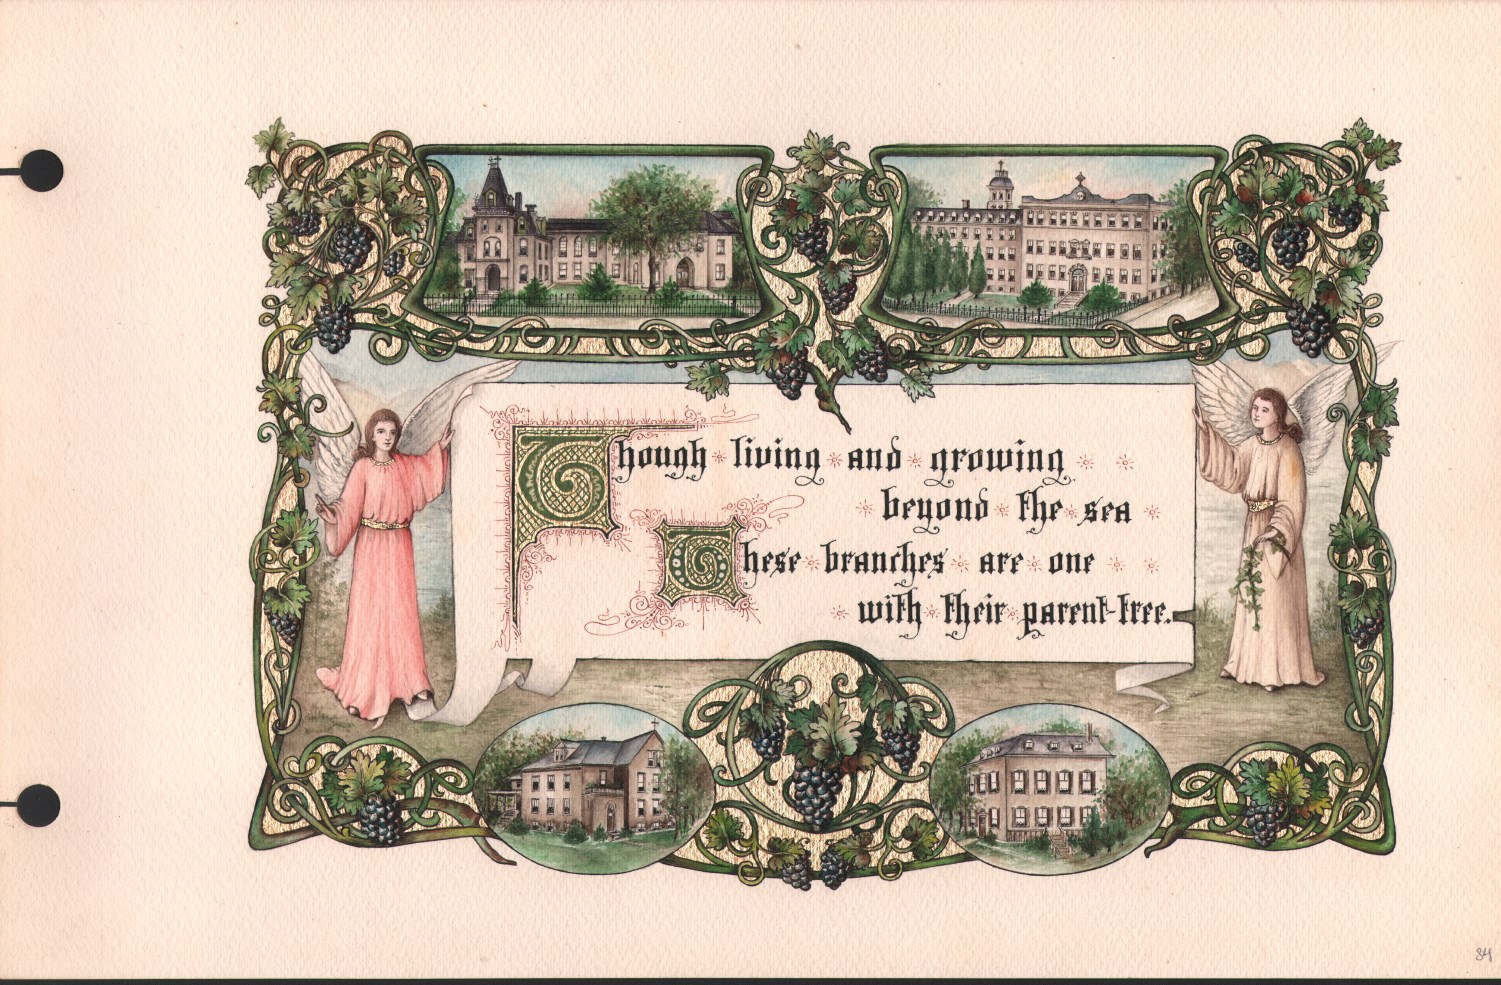 Though living and growing
beyond the sea
These branches are one
with their parent-tree.
84